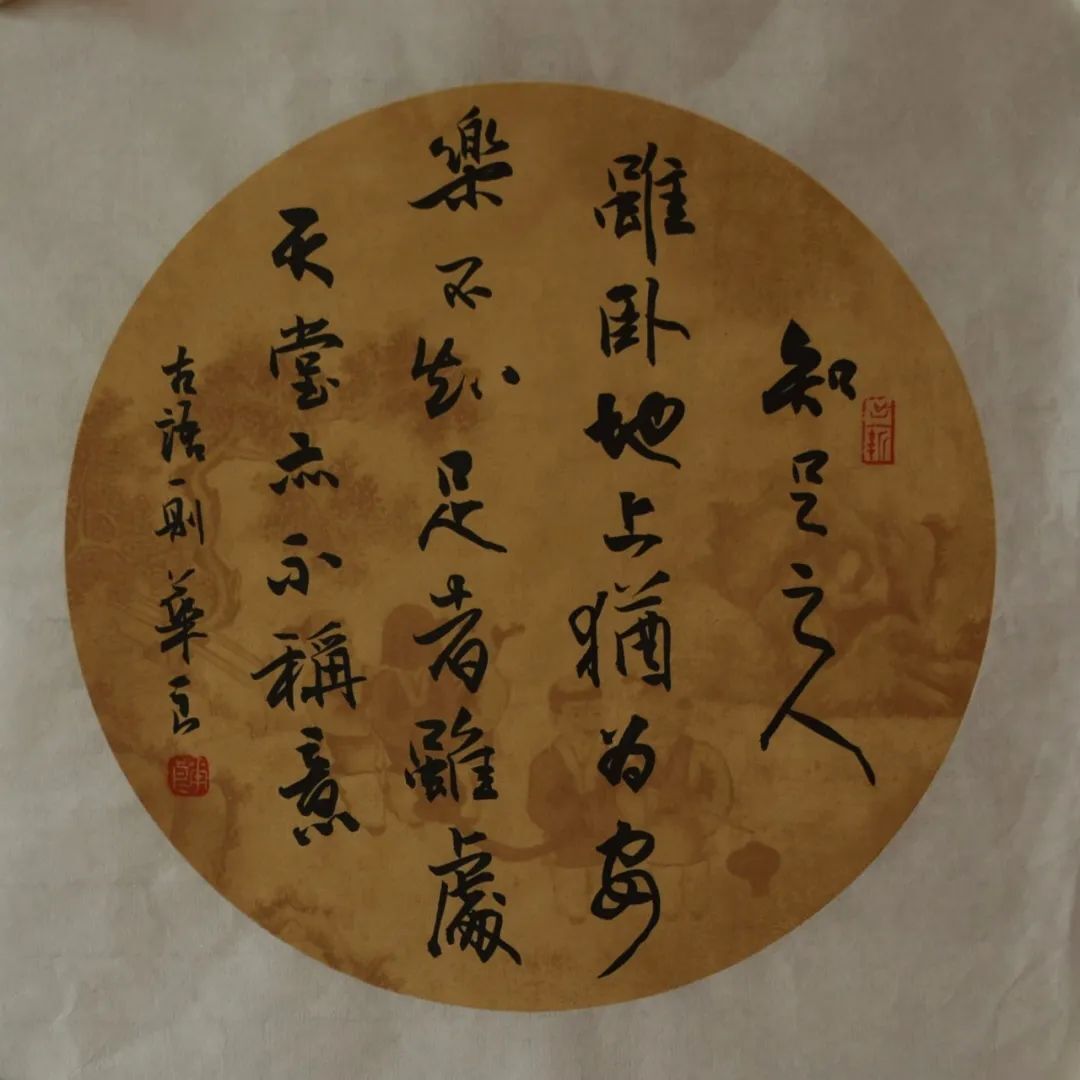 知足之人
雖卧地上猶为安
樂不知足者雖處
天堂亦不稱意
古語一則 華良